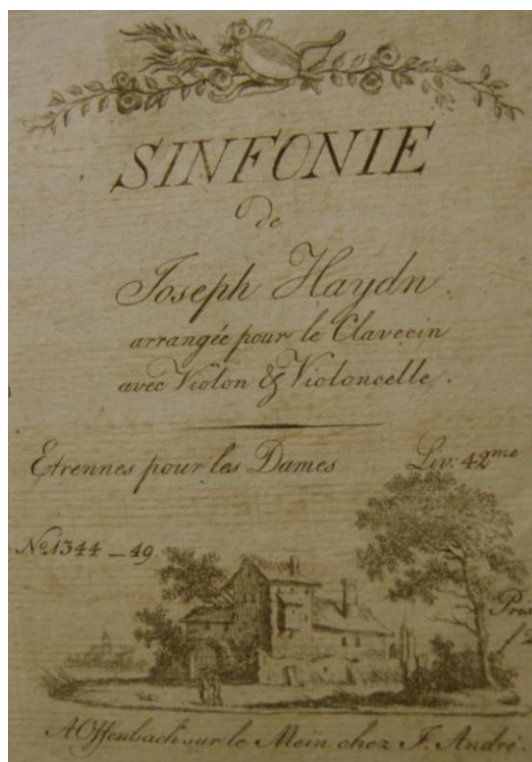 SINFONIE
de
Joseph Haydn.
arrangée pour le Clavecin
avec Violon & Violoncelle.
Etrennes pour les Dames Liv: 42me
No. 1344 _ 49.
A Offenbach sur le Mein chez J. André.